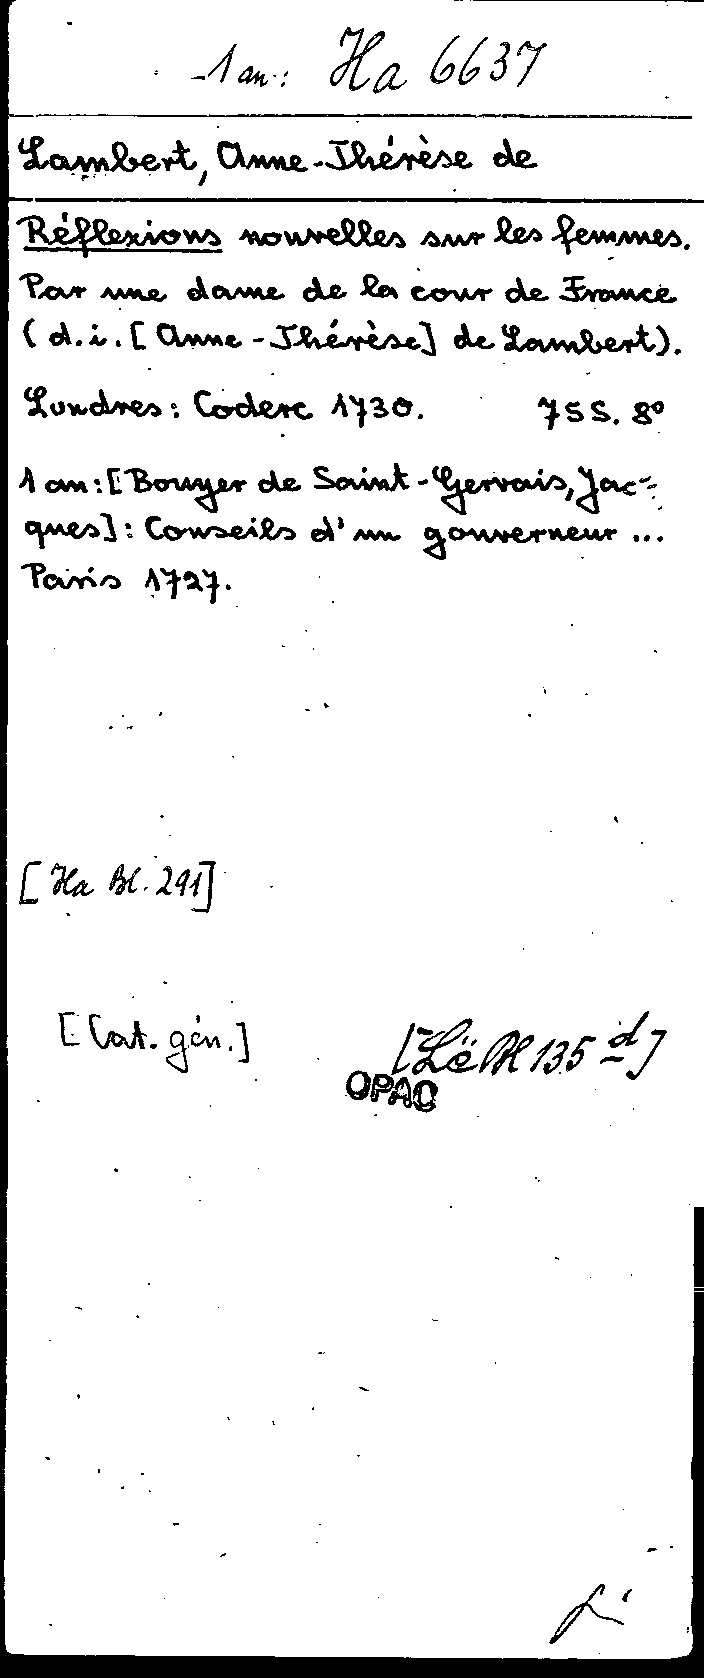 1 an: Ha 6637
Lambert, Anne-Thérèse de
Réflexions nouvelles sur les femmes.
Par une dame de la cour de France
(d.i. [Anne-Thérèse] de Lambert).
Londres: Coderc 1730. 75 S. 8°
1 an: [Bouyer de Saint-Gervais, Jac-
ques]: Conseils d'un gouverneur ...
Paris 1727.
[Ha Bl. 291]
[Cat. gén.]
[Lë Bl 135 d]
OPAC